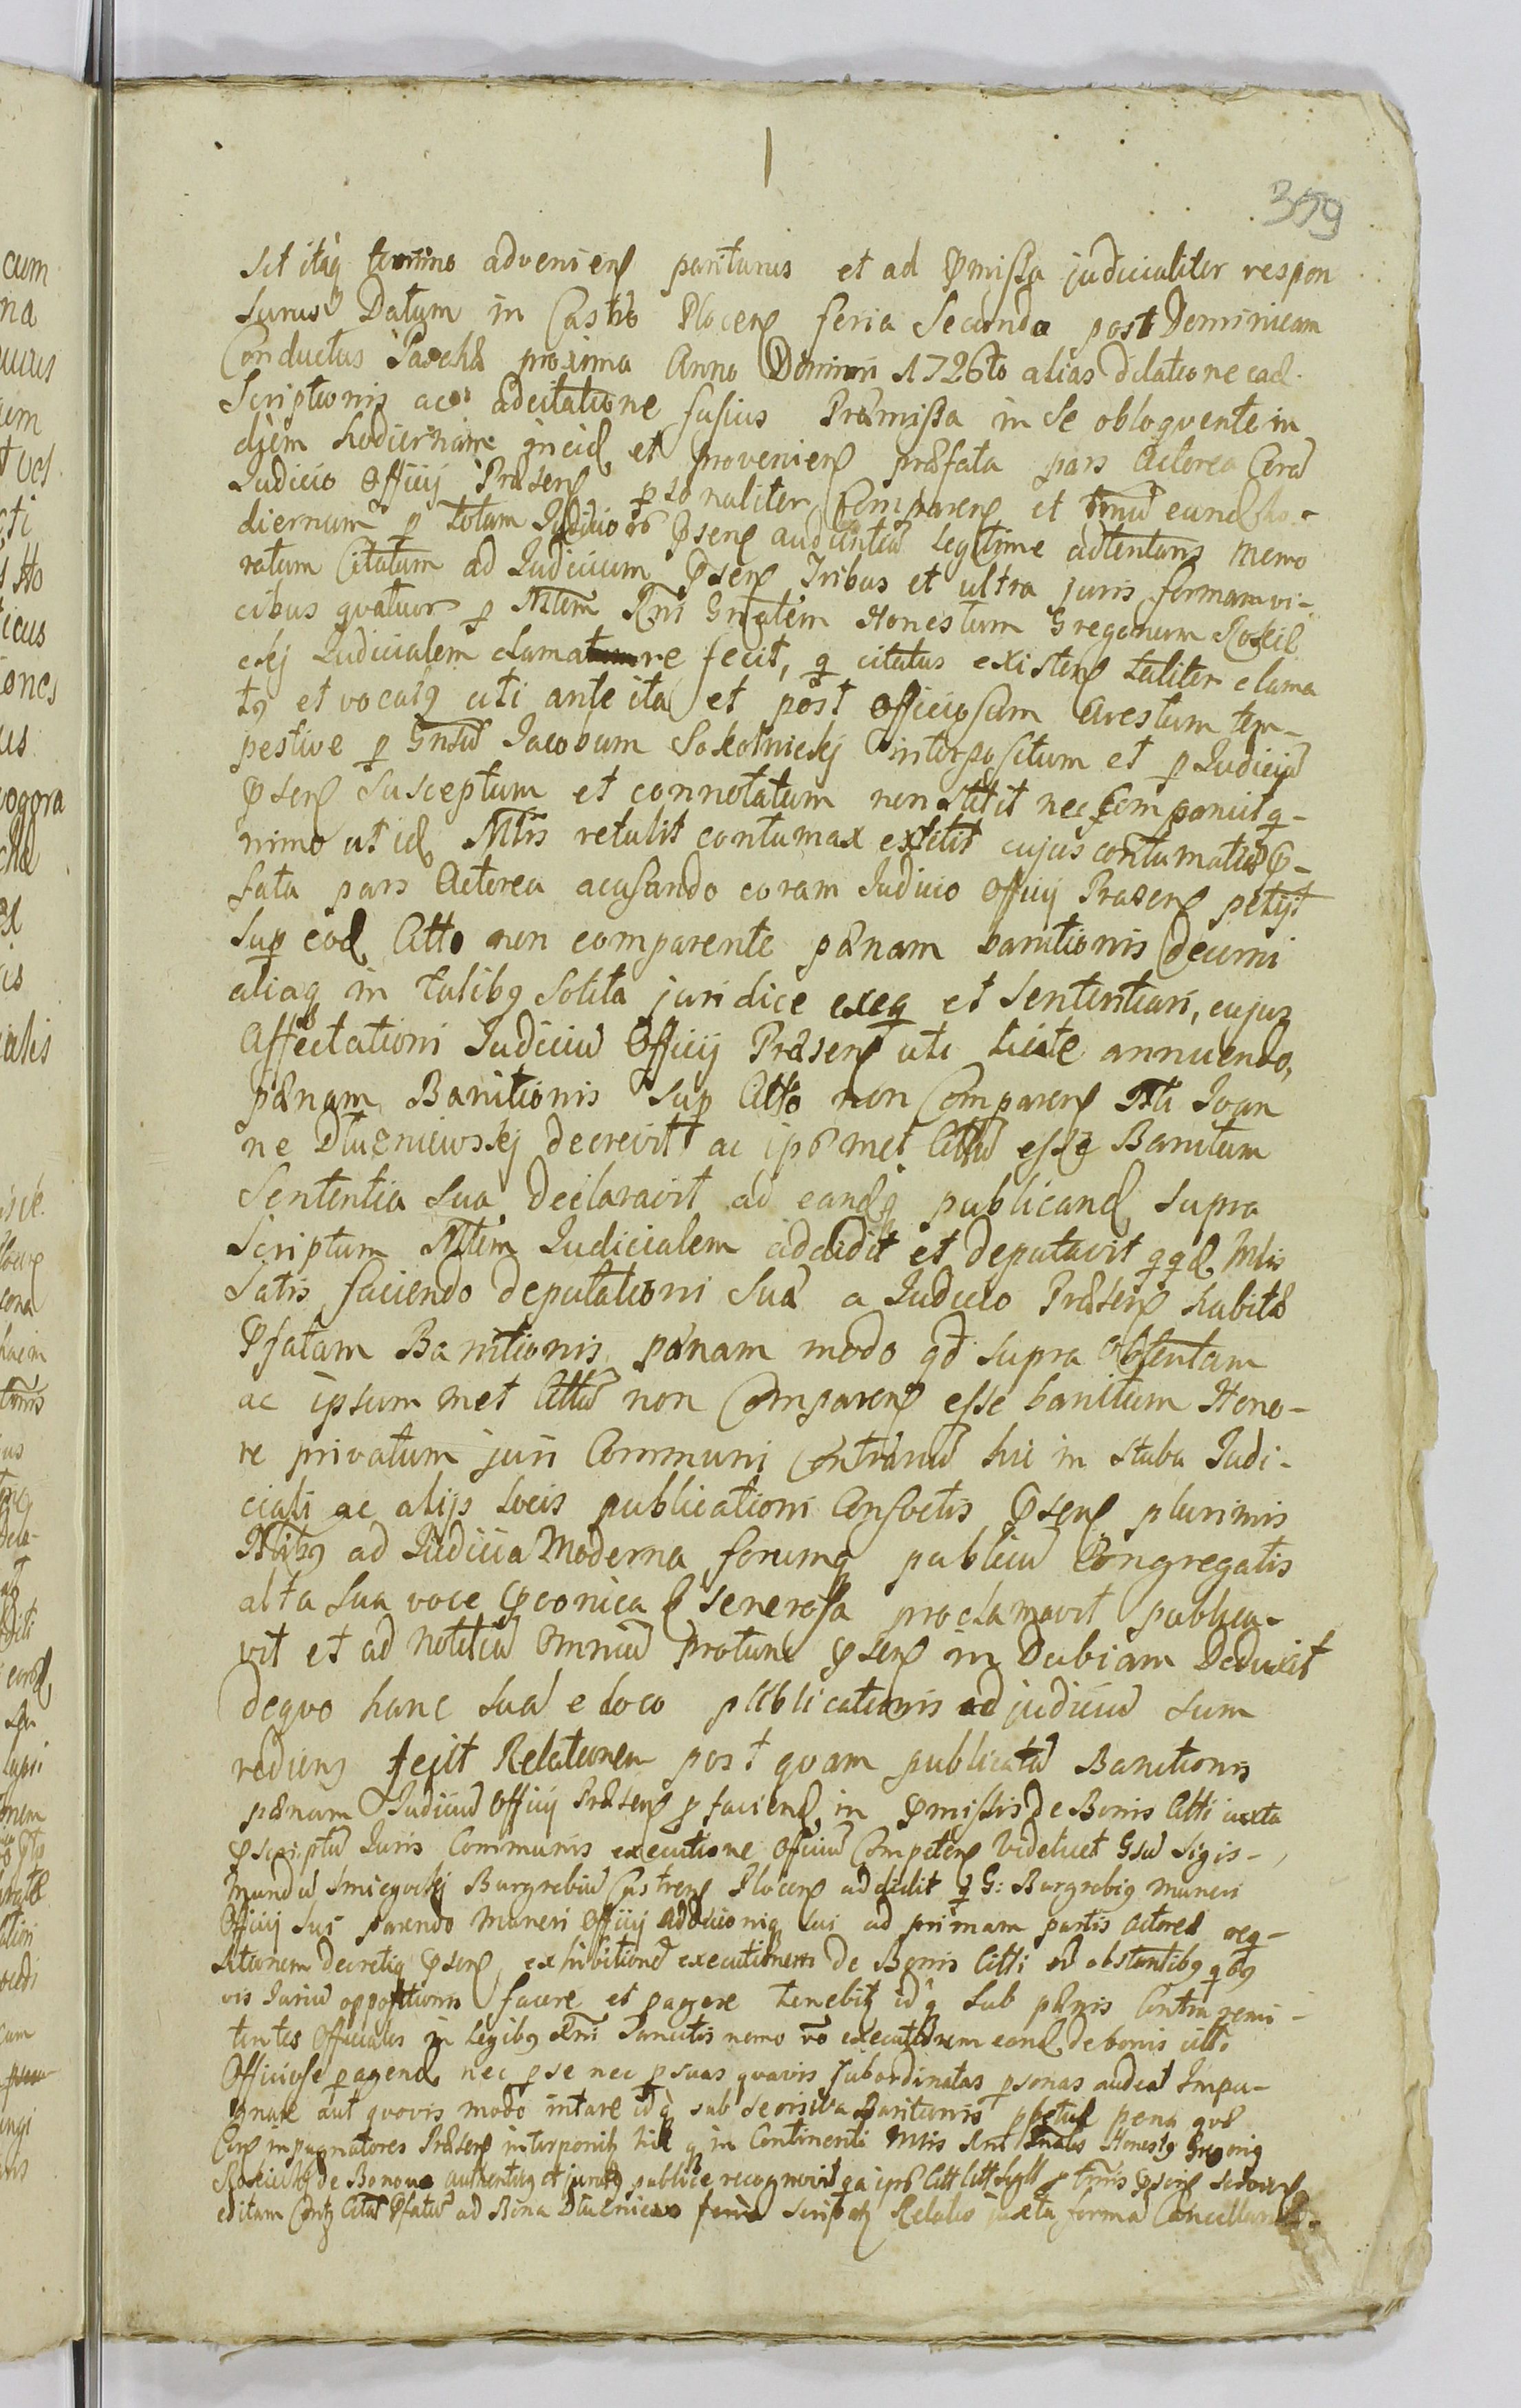 359
sit itaq termino adveniens pariturus et ad pmissa judicialiter respon
surus Datum in Castro Plocens feria Secunda post Dominicam
Conductus Paschæ proxima Anno Domini 1726to alias dilatione ead
Scriptionis adcitatione fusius Præmissa in se obloquente in
diem hodiernam incid et proveniens præfata pars Actorea Corã
Judicio Officij Præsens psonaliter Comparens et eund ho-
diernum p totam Judicio psens audientiã legitime adtentans memo
ratum Citatum ad Judicium psens Tribus et ultra juris formam vi-
cibus quatuor p Mtem Rni Gnalem Honestum Gregorium Roscis
skj Judicialem clamare fecit, q citatus existens taliter clama
tq et vocatq uti ante ita et post Officiosum Arestum tem-
pestive p Gnsũ Jacobum Sokolnickj interpositum et p Judiciũ
psens susceptum et connotatum non stetit nec Comparuit q-
nimo ut id Mtris retulit contumax extitit cujus contumatiã p-
fata pars Actorea acusando coram Judicio Officij Præsens petijt
Sup eod Citto non comparente pænam banitionis decerni
aliaq in talibq solita juridice exeq et sententiari, cujus
Affectationi Judiciũ Officij Præsens uti licite annuendo,
pænam Banitionis sup Citto non Comparens Joan
ne Dluzniewskj decrevit ac ipsmet Cittũ esse Banitum
Sententia sua declaravit ad eandq publicand supra
Scriptum Mtem Judicialem addidit et deputavit qqd Mtris
satis faciendo deputationi suæ a Judicio Præsens habitæ
Pfatam Banitionis pænam modo qd supra obtentam
ac ipsum met Cittũ non Comparens esse banitum Hono-
re privatum juri Communi Contrariũ hic in stuba Judi-
ciali ac alijs locis publicationi Consvetis psens plurimis
ad Judicia Moderna forumq publicũ Congregatis
alta sua voce pconica et senerosa proclamavit publica-
vit et ad notitiã omniũ protunc psens in Dubiam Deduxit
dequo hanc suã e loco publicationis ad judiciũ sum
rediens fecit Relationem post quam publicatã Banitionis
pænam Judiciũ Officij Præsens p faciend in pmissis de Bonis Citti iuxta
pscriptũ Juris Communis executione Officiũ Competens Videlicet Gsũ Sigis-
mundũ Smiegockj Burgrabiũ Castrens Plocens addidit q G: Burgrabiq muneri
Officij sui parendo muneri Officij addicioniq sui ad primam partis Actoreæ req-
sitionem decretiq psens, exhibitionẽ executionem de Bonis Citti obstantibq qbq
vis Juriũ oppositionis facere et pagere tenebitq idq sub pænis Contra remi-
tentes Officiales in Legibq Rni sancitis nemo vo executionem eand de bonis citti
Officiose pagend nec p se nec p suas quavis subordinatas psonas audeat Impu-
gnare aut quovis modo intare idq sub seorsiva Banitionis ppetuæ pena quæ
impugnatores Præsens interponitq hic q in Continenti Mtris Rni Gnalis Honestq Gregoriq
Rosciskj de Bonova authentiq et juratq publice recognovit qa
editam Contq Citãt Pfatũ ad Bona Dluzniewo scripsitq Relatio juxta formã Cancellariæ